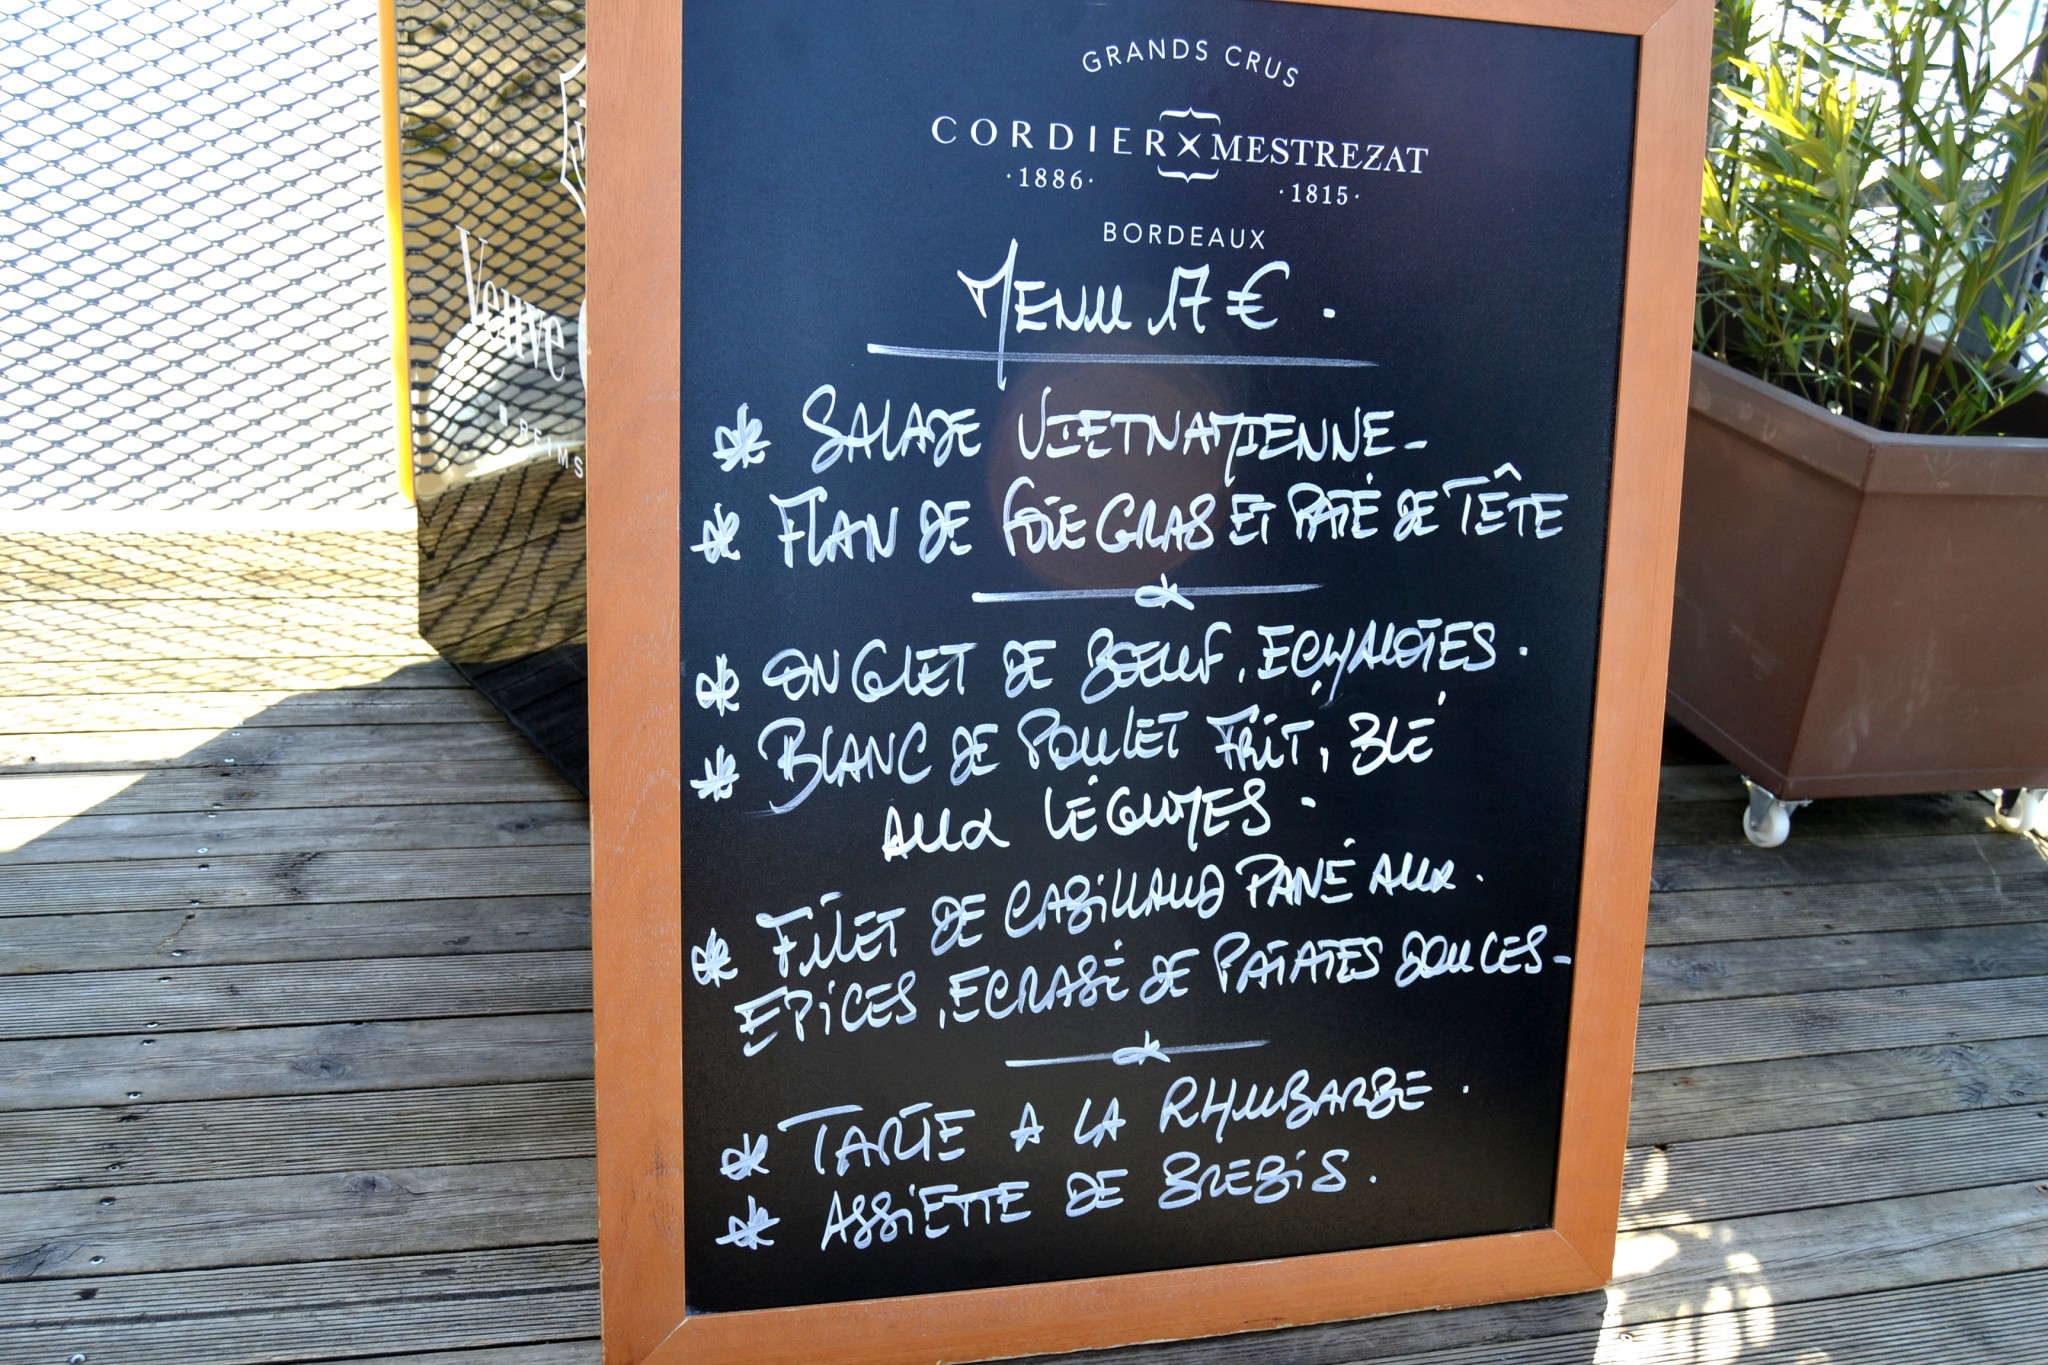 GRANDS CRUS
CORDIER X MESTREZAT
·1886· ·1815·
BORDEAUX
MENU 17 € .
* SALADE VIETNAMIENNE -
* FLAN DE FOIE GRAS ET PATÉ DE TÊTE
* ONGLET DE BOEUF, ECHALOTES.
* BLANC DE POULET FRIT, BLÉ
AUX LÉGUMES.
* FILET DE CABILLAUD PANÉ AUX.
EPICES, ECRASÉ DE PATATES DOUCES-
* TARTE A LA RHUBARBE.
* ASSIETTE DE BREBIS.
Veuve
REIMS